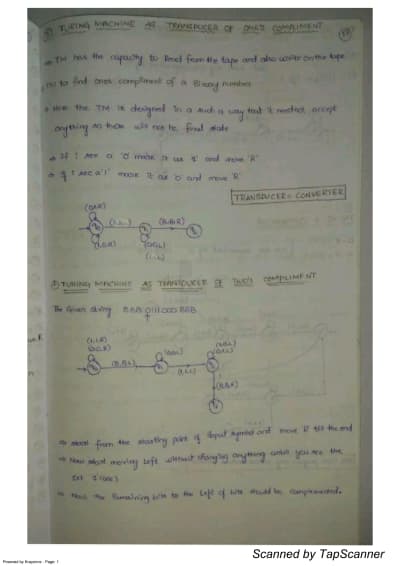 TURING MACHINE AS TRANSDUCER OF ONE'S COMPLIMENT
→ TM has the capacity to Read from the tape and also write on the tape
TM to find ones compliment of a Binary number
→ Here the TM is designed in a such a way that it needn't accept
anything so there will not be final state
→ If I see a '0' make it as '1' and move 'R'
→ If I see a '1' make it as '0' and move 'R'
TRANSDUCER = CONVERTER
(B,B,R)
TURING MACHINE AS TRANSDUCER OF TWO'S COMPLIMENT
The Given string BBB 0111000 BBB
(1,1,R)
(0,0,R)
(0,0,L)
(B,B,L)
(1,1,L)
(B,B,R)
→ start from the starting point of Input symbol and move 'R' till the end
→ Now start moving left without changing anything until you see the
1st 1 (one)
→ Now the Remaining bits to the left of bits should be complemented.
Scanned by TapScanner
Page: 1